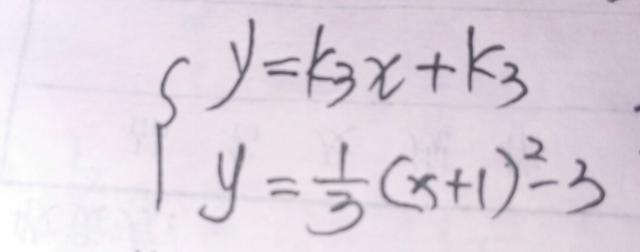 y=k₃x+k₃
y=\frac{1}{3}(x+1)²-3